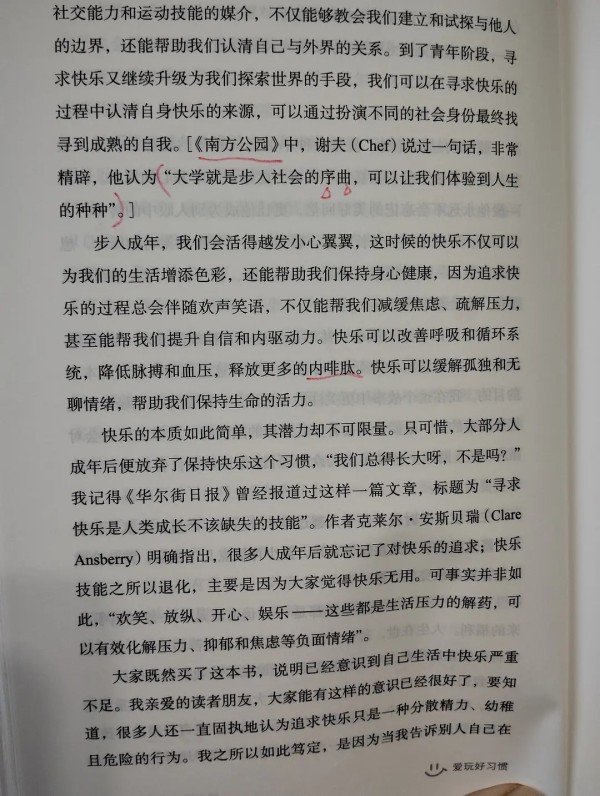 社交能力和运动技能的媒介，不仅能够教会我们建立和试探与他人
的边界，还能帮助我们认清自己与外界的关系。到了青年阶段，寻
求快乐又继续升级为我们探索世界的手段，我们可以在寻求快乐的
过程中认清自身快乐的来源，可以通过扮演不同的社会身份最终找
寻到成熟的自我。[《南方公园》中，谢夫（Chef）说过一句话，非常
精辟，他认为“大学就是步入社会的序曲，可以让我们体验到人生
的种种”。]
步入成年，我们会活得越发小心翼翼，这时候的快乐不仅可以
为我们的生活增添色彩，还能帮助我们保持身心健康，因为追求快
乐的过程总会伴随欢声笑语，不仅能帮我们减缓焦虑、疏解压力，
甚至能帮我们提升自信和内驱动力。快乐可以改善呼吸和循环系
统，降低脉搏和血压，释放更多的内啡肽。快乐可以缓解孤独和无
聊情绪，帮助我们保持生命的活力。
快乐的本质如此简单，其潜力却不可限量。只可惜，大部分人
成年后便放弃了保持快乐这个习惯，“我们总得长大呀，不是吗？”
我记得《华尔街日报》曾经报道过这样一篇文章，标题为“寻求
快乐是人类成长不该缺失的技能”。作者克莱尔·安斯贝瑞（Clare
Ansberry）明确指出，很多人成年后就忘记了对快乐的追求；快乐
技能之所以退化，主要是因为大家觉得快乐无用。可事实并非如
此，“欢笑、放纵、开心、娱乐——这些都是生活压力的解药，可
以有效化解压力、抑郁和焦虑等负面情绪”。
大家既然买了这本书，说明已经意识到自己生活中快乐严重
不足。我亲爱的读者朋友，大家能有这样的意识已经很好了，要知
道，很多人还一直固执地认为追求快乐只是一种分散精力、幼稚
且危险的行为。我之所以如此笃定，是因为当我告诉别人自己在
爱玩好习惯